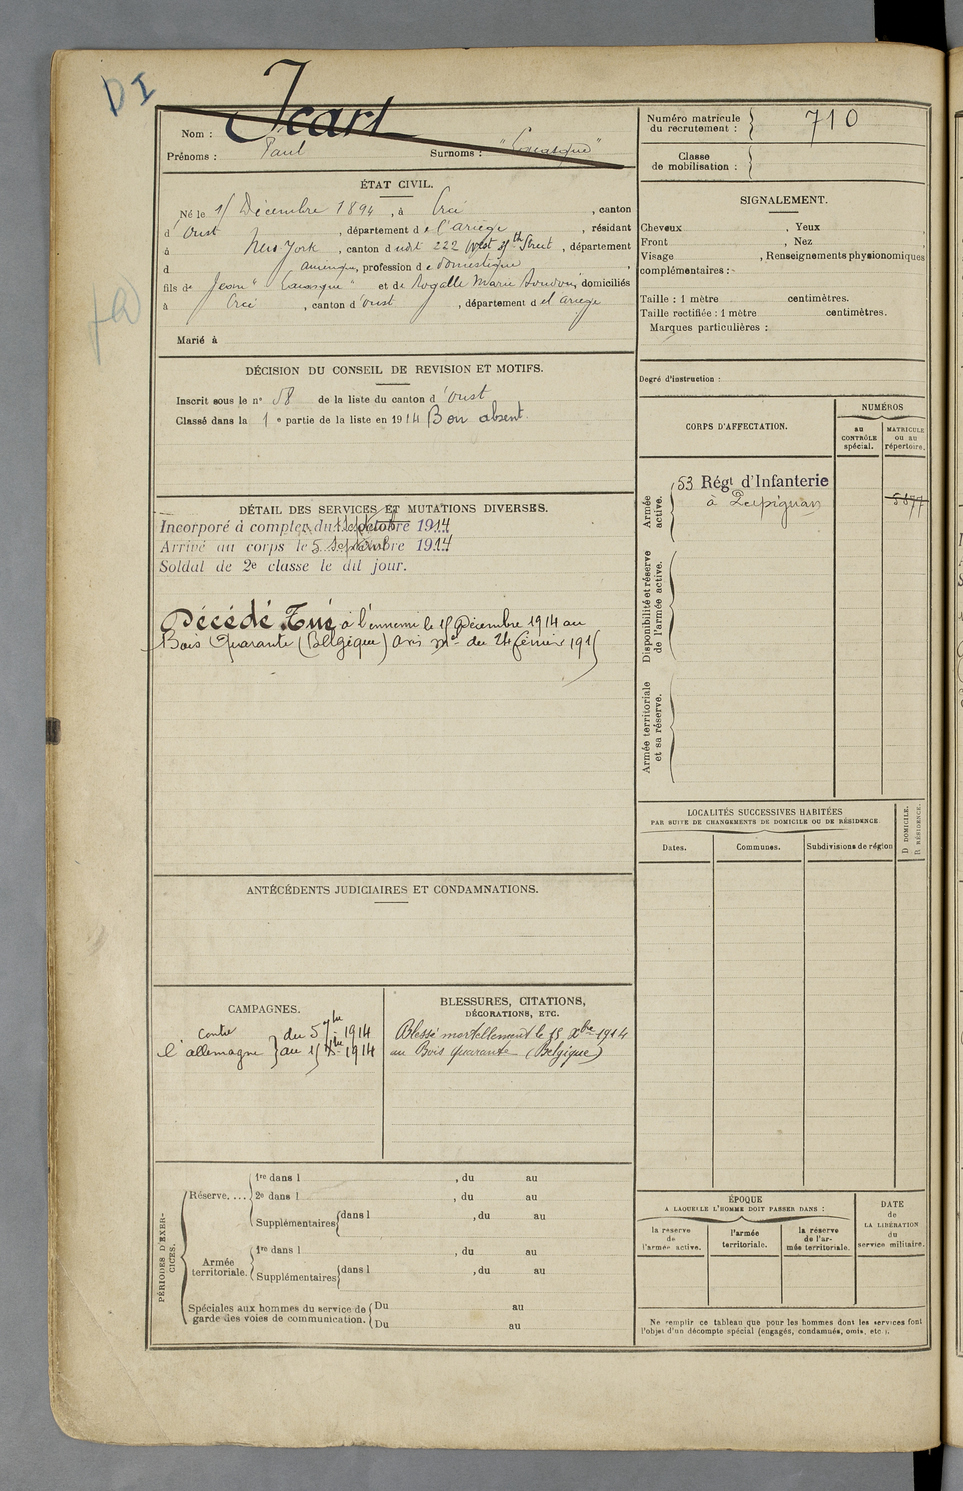 DI
Nom : Icart
Prénoms : Paul Surnoms :
ÉTAT CIVIL.
Né le 15 Décembre 1894, à Ercé, canton
d'Oust, département de l'ariège, résidant
à New-York, canton d 222 West Street, département
d amérique, profession de domestique,
fils de Jean et de Rogalle Marie, domiciliés
à Ercé, canton d'oust, département de l'ariège
Marié à
DÉCISION DU CONSEIL DE REVISION ET MOTIFS.
Inscrit sous le n° 58 de la liste du canton d'Oust
Classé dans la 1e partie de la liste en 1914 Bon absent.
DÉTAIL DES SERVICES ET MUTATIONS DIVERSES.
Incorporé à compter du octobre 1914
Arrivé au corps le 5 septembre 1914
Soldat de 2e classe le dit jour.
Décédé Tué à l'ennemi le 15 Décembre 1914 au
Bois Quarante (Belgique) avis mel du 24 février 1915
ANTÉCÉDENTS JUDICIAIRES ET CONDAMNATIONS.
CAMPAGNES.
contre
l'allemagne
du 5 7bre 1914
au 15 Xbre 1914
BLESSURES, CITATIONS,
DÉCORATIONS, ETC.
Blessé mortellement le 15 Xbre 1914
au Bois Quarante (Belgique)
PÉRIODES D'EXER-
CICES.
Réserve....
1re dans l , du au
2e dans l , du au
Supplémentaires dans l , du au
Armée
territoriale.
1re dans l , du au
Supplémentaires dans l , du au
Spéciales aux hommes du service de
garde des voies de communication.
Du au
Du au
Numéro matricule
du recrutement : 710
Classe
de mobilisation :
SIGNALEMENT.
Cheveux , Yeux
Front , Nez
Visage , Renseignements physionomiques
complémentaires :
Taille : 1 mètre centimètres.
Taille rectifiée : 1 mètre centimètres.
Marques particulières :
Degré d'instruction :
CORPS D'AFFECTATION.
NUMÉROS
au
CONTRÔLE
spécial.
MATRICULE
ou au
répertoire.
Armée
active.
53 Régt d'Infanterie
à Perpignan
5877
Disponibilité et réserve
de l'armée active.
Armée territoriale
et sa réserve.
LOCALITÉS SUCCESSIVES HABITÉES
PAR SUITE DE CHANGEMENTS DE DOMICILE OU DE RÉSIDENCE.
Dates.
Communes.
Subdivisions de région
D DOMICILE.
R RÉSIDENCE.
ÉPOQUE
A LAQUELLE L'HOMME DOIT PASSER DANS :
la réserve
de
l'armée active.
l'armée
territoriale.
la réserve
de l'ar-
mée territoriale.
DATE
de
LA LIBÉRATION
du
service militaire.
Ne remplir ce tableau que pour les hommes dont les services font
l'objet d'un décompte spécial (engagés, condamnés, omis, etc.).